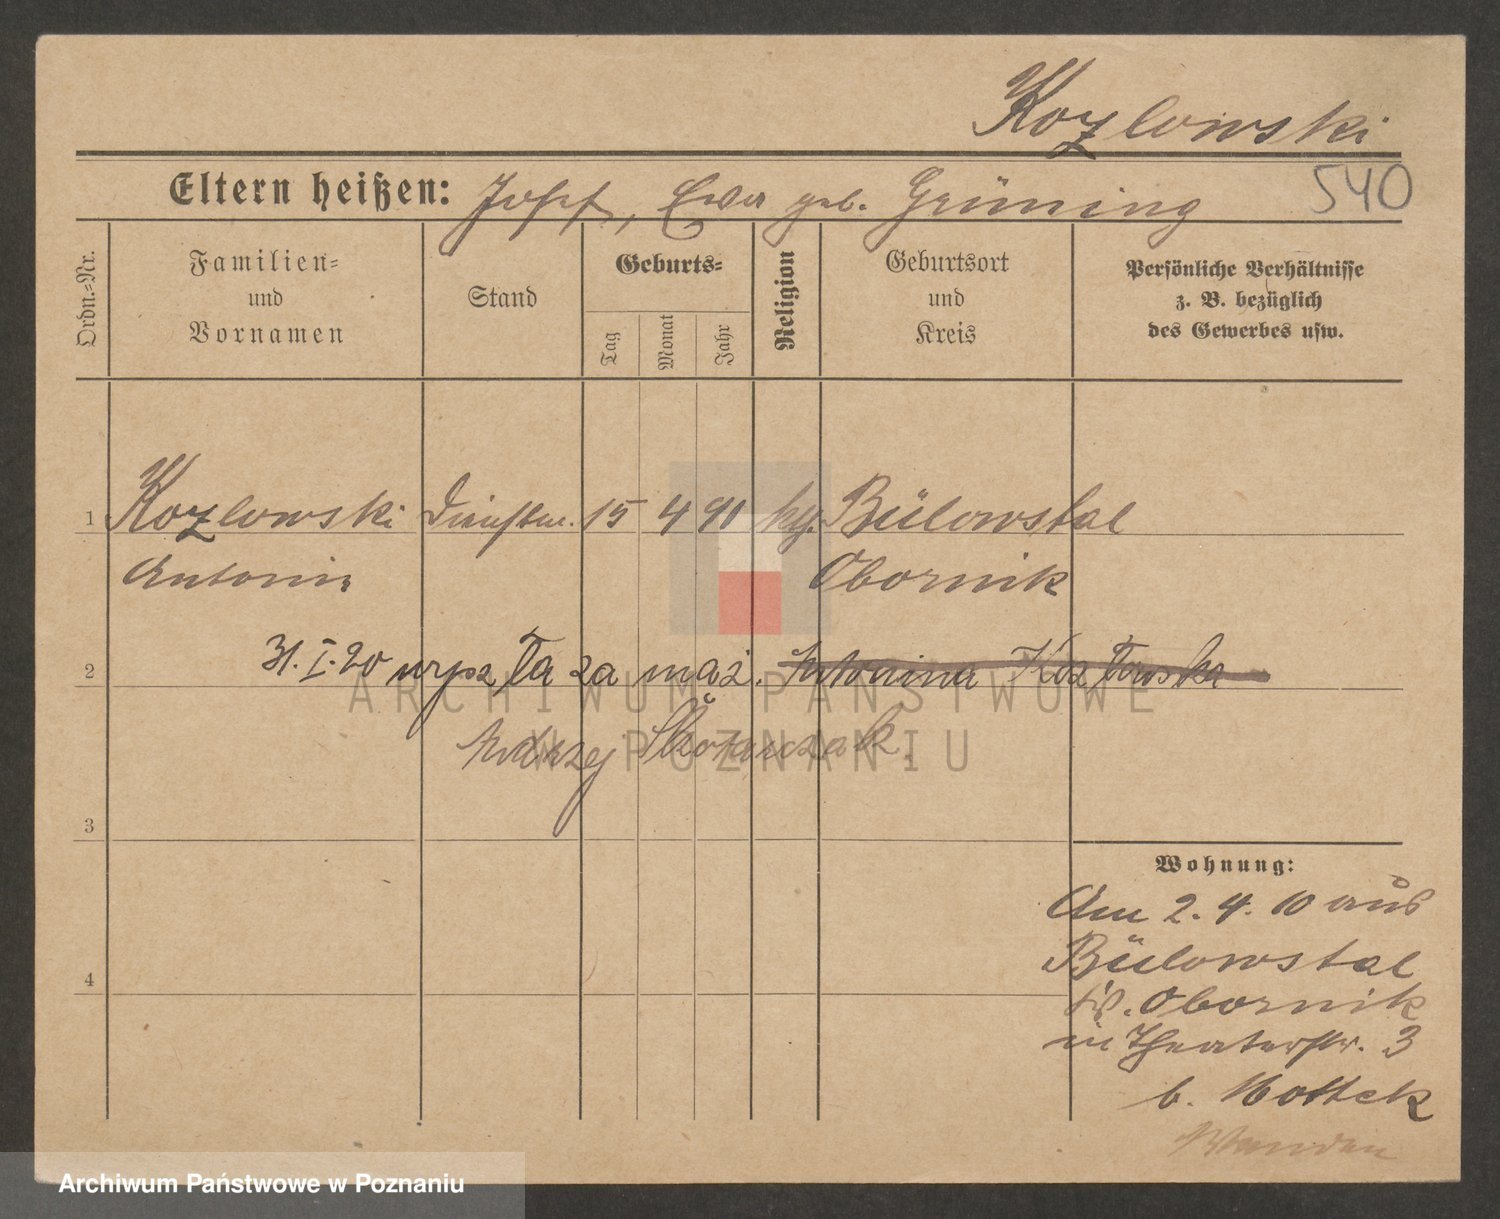 Kozlowski
540
Eltern heißen: Josef, Ewa geb. Grüning
Ordn.-Nr.
Familien-
und
Vornamen
Stand
Geburts-
Tag
Monat
Jahr
Religion
Geburtsort
und
Kreis
Persönliche Verhältnisse
z. B. bezüglich
des Gewerbes usw.
1 Kozlowski Dienstm. 15 4 90 Bülowstal
Antonie Obornik
2 31. I. 20 wyszła za mąż. Antonina Kozłowska
Andrzej
3
4
Wohnung:
Am 2. 4. 10 aus
Bülowstal
Obornik
in Theaterstr. 3
b. Mottek
ARCHIWUM PAŃSTWOWE
W POZNANIU
Archiwum Państwowe w Poznaniu